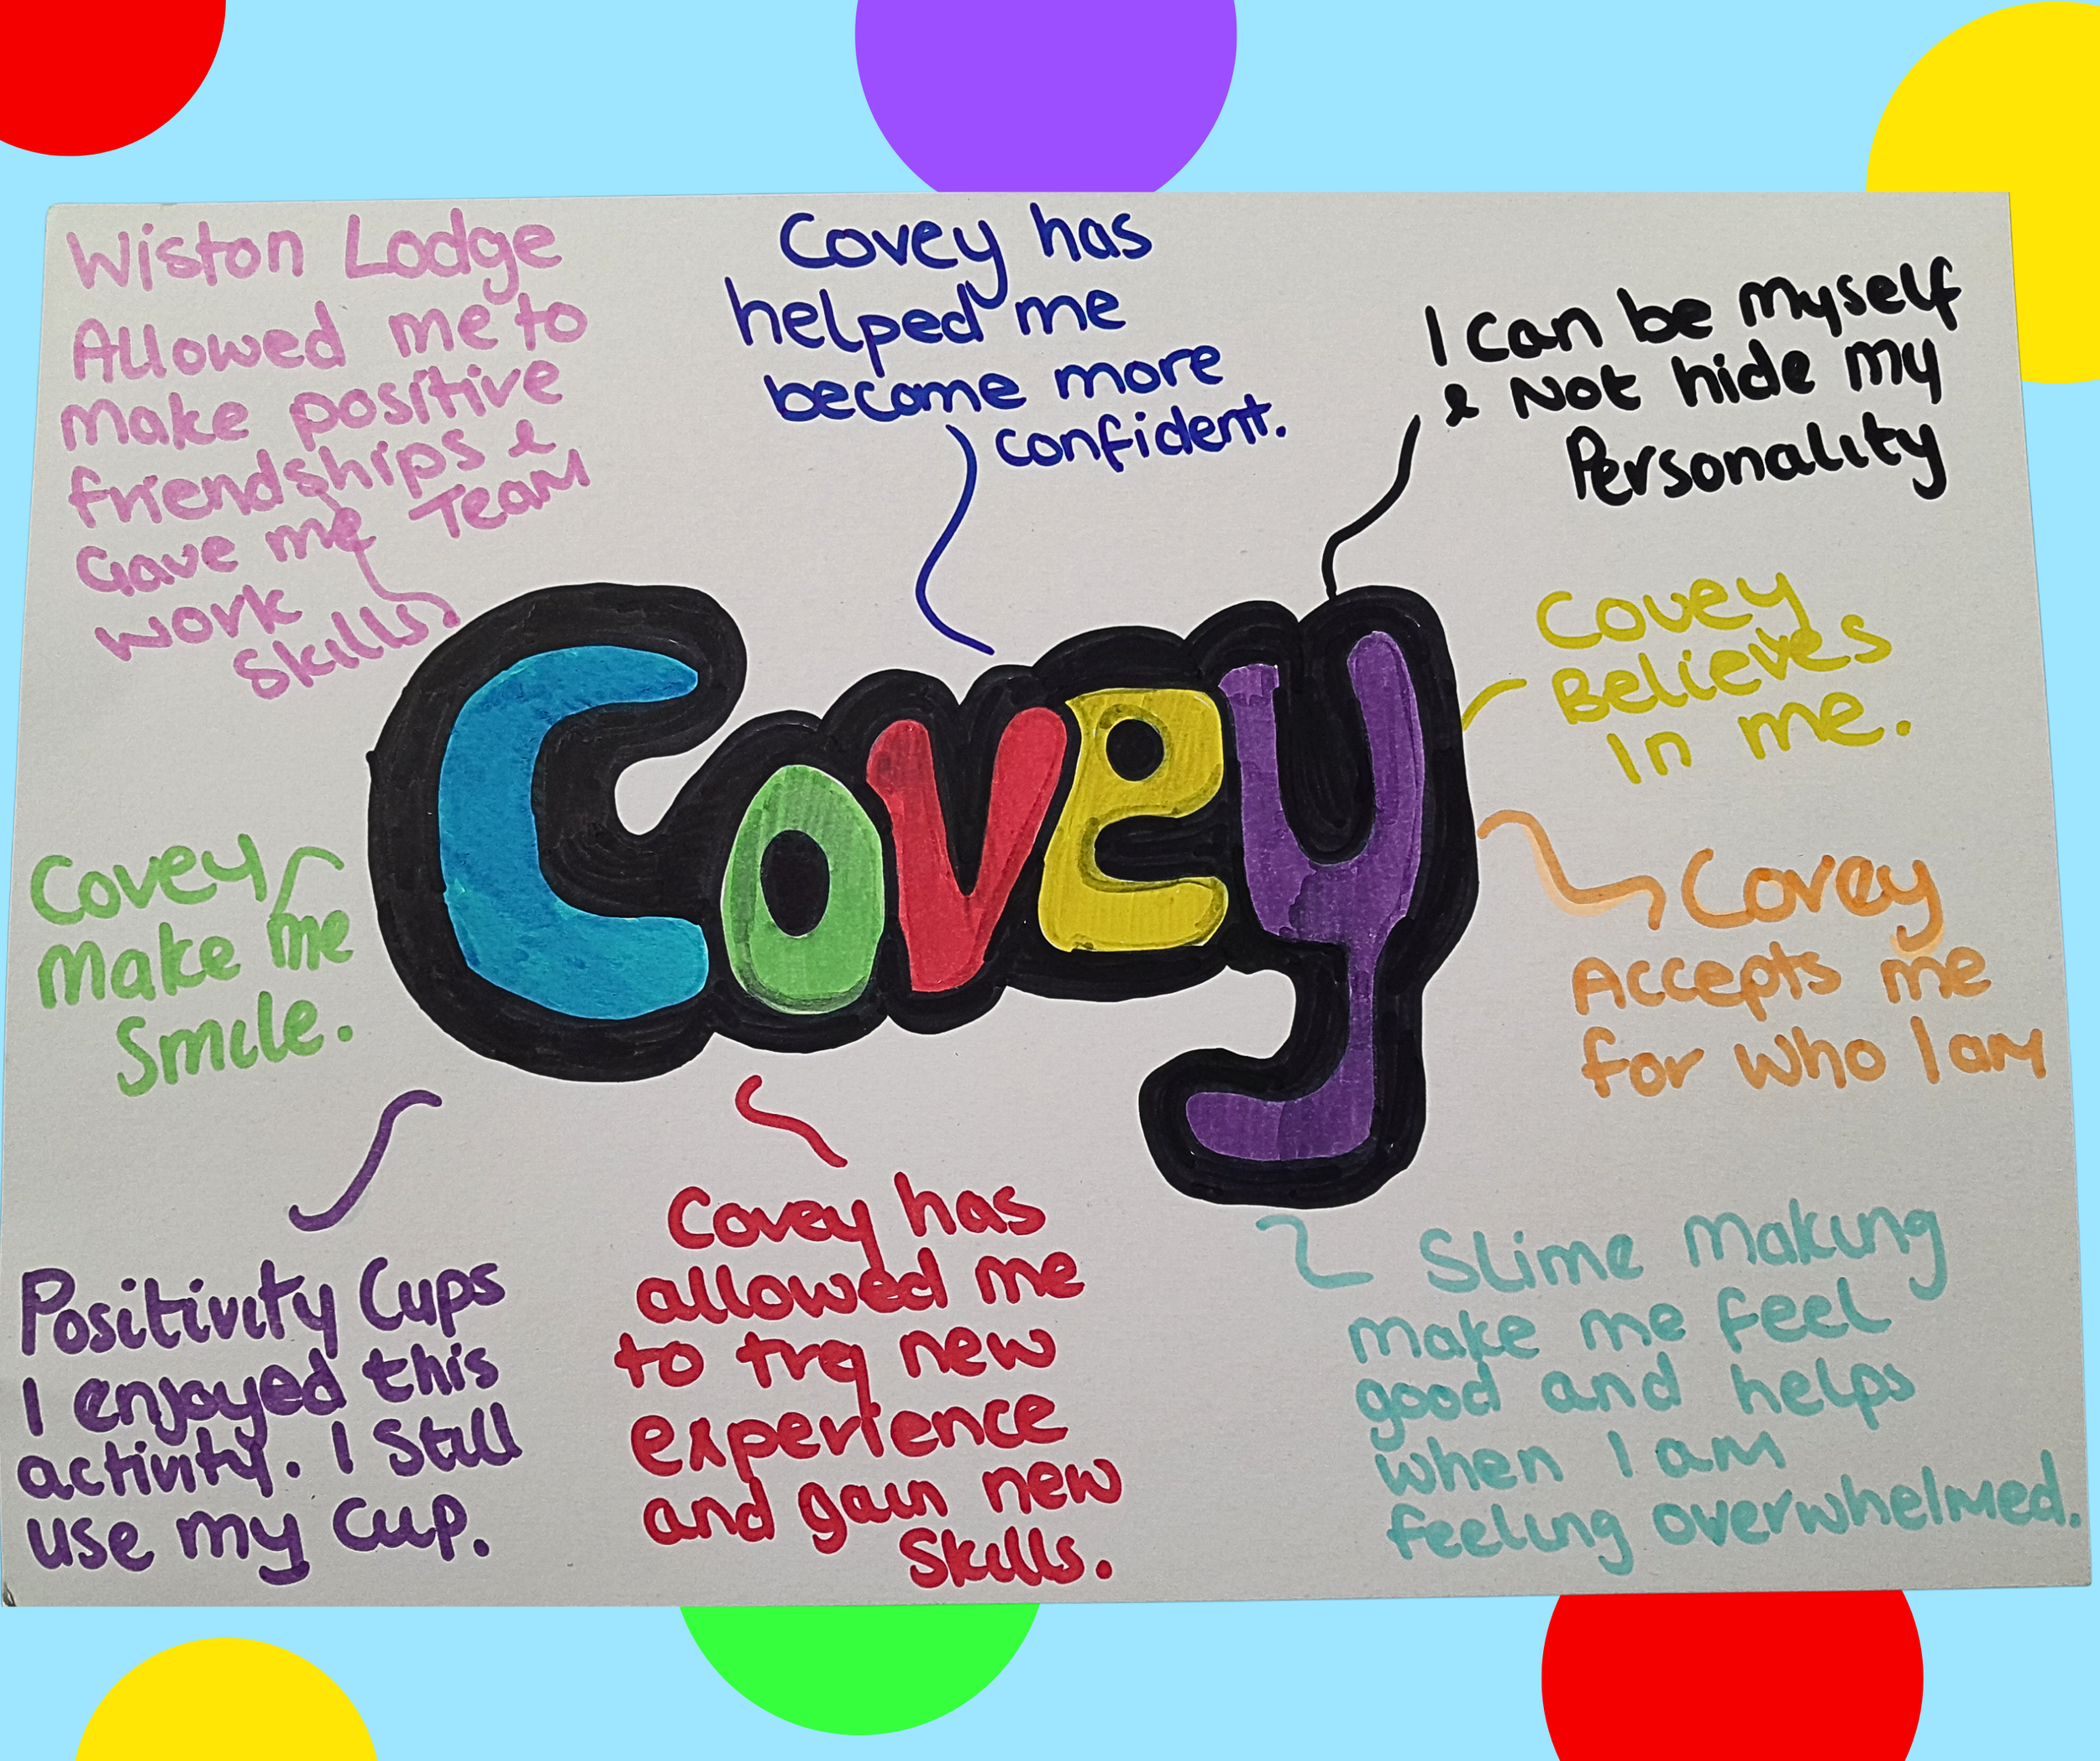 Wiston Lodge
Allowed me to
make positive
friendships &
Gave me Team
work
Skills
Covey has
helped me
become more
confident.
I can be myself
& Not hide my
Personality
Covey
Believes
In me.
Covey
Accepts me
for who I am
Covey
Covey
make me
Smile.
Positivity Cups
I enjoyed this
activity. I Still
use my cup.
Covey has
allowed me
to try new
experience
and gain new
Skills.
Slime making
make me feel
good and helps
when I am
feeling overwhelmed.